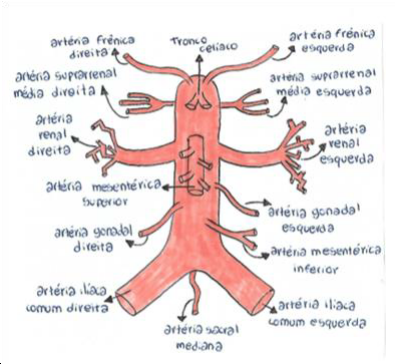 artéria frênica
direita
tronco
celíaco
artéria frênica
esquerda
artéria suprarrenal
média direita
artéria suprarrenal
média esquerda
artéria
renal
direita
artéria
renal
esquerda
artéria mesentérica
superior
artéria gonadal
direita
artéria gonadal
esquerda
artéria mesentérica
inferior
artéria ilíaca
comum direita
artéria sacral
mediana
artéria ilíaca
comum esquerda